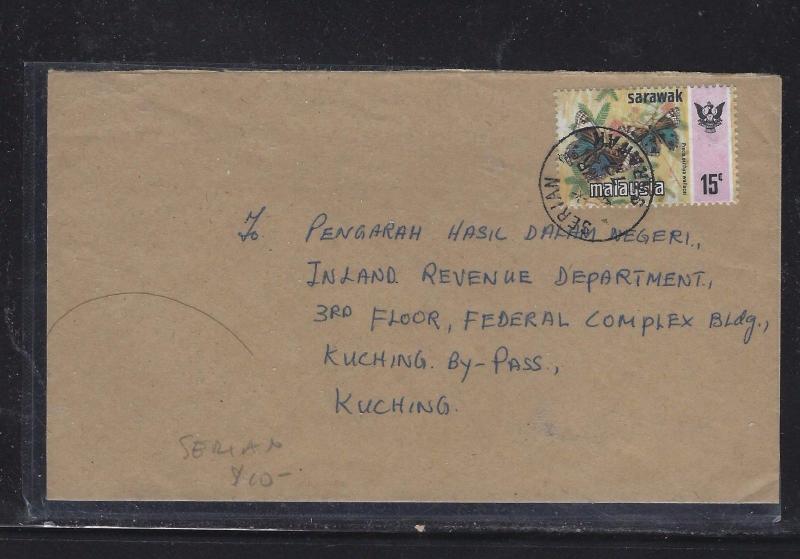 sarawak
malaysia
15c
SERIAN
To
PENGARAH HASIL DALAM NEGERI.,
INLAND REVENUE DEPARTMENT,
3RD FLOOR, FEDERAL COMPLEX Bldg.,
KUCHING. BY-PASS.,
KUCHING.
SERIAN